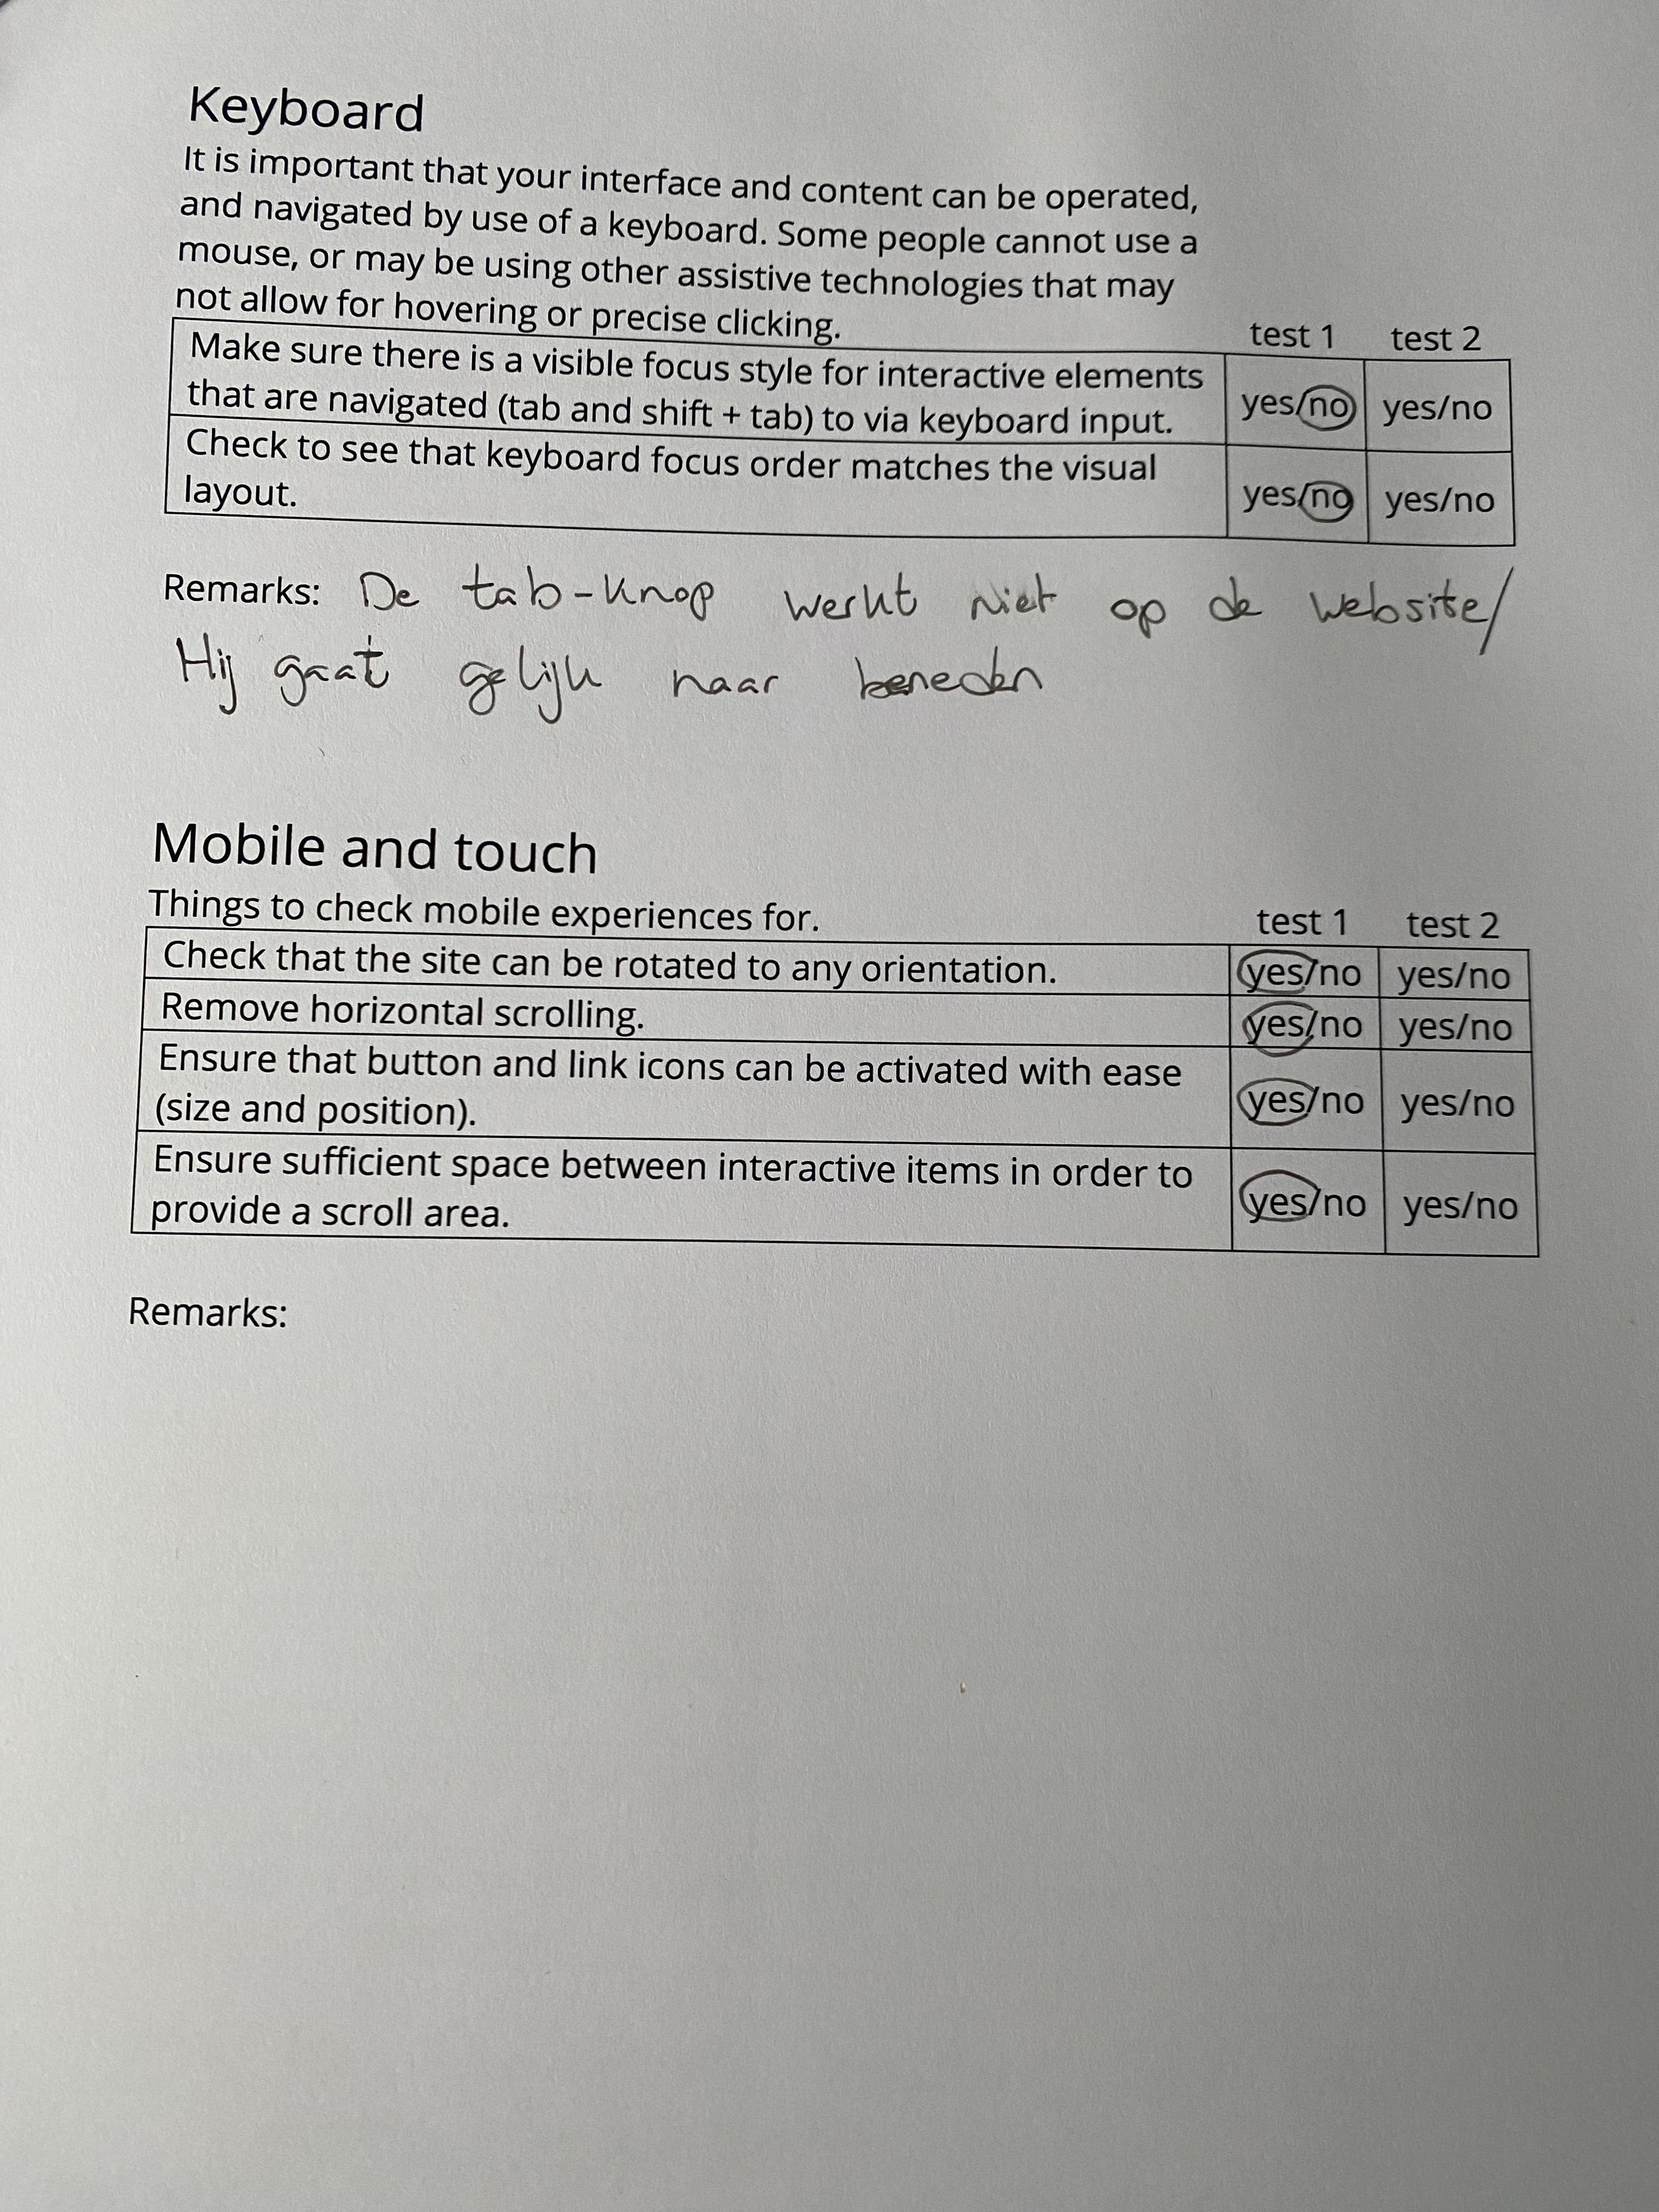 Keyboard
It is important that your interface and content can be operated,
and navigated by use of a keyboard. Some people cannot use a
mouse, or may be using other assistive technologies that may
not allow for hovering or precise clicking.
test 1 test 2
Make sure there is a visible focus style for interactive elements
that are navigated (tab and shift + tab) to via keyboard input.
yes/no yes/no
Check to see that keyboard focus order matches the visual
layout.
yes/no yes/no
Remarks: De tab-knop werkt niet op de website/
Hij gaat gelijk naar beneden
Mobile and touch
Things to check mobile experiences for.
test 1 test 2
Check that the site can be rotated to any orientation. yes/no yes/no
Remove horizontal scrolling. yes/no yes/no
Ensure that button and link icons can be activated with ease
(size and position).
yes/no yes/no
Ensure sufficient space between interactive items in order to
provide a scroll area.
yes/no yes/no
Remarks: